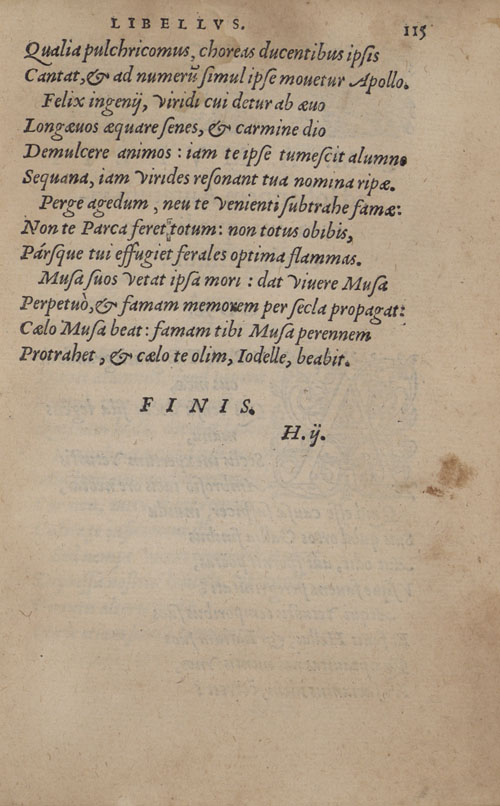 LIBELLVS. 115
Qualia pulchricomus, choreas ducentibus ipsis
Cantat, & ad numerū simul ipse mouetur Apollo.
Felix ingenij, viridi cui detur ab æuo
Longæuos æquare senes, & carmine dio
Demulcere animos : iam te ipse tumescit alumno
Sequana, iam virides resonant tua nomina ripæ.
Perge agedum, neu te venienti subtrahe famæ:
Non te Parca feret totum: non totus obibis,
Pársque tui effugiet ferales optima flammas.
Musa suos vetat ipsa mori : dat viuere Musa
Perpetuò, & famam memorem per secla propagat:
Cælo Musa beat: famam tibi Musa perennem
Protrahet, & cælo te olim, Iodelle, beabit.
FINIS.
H.ij.